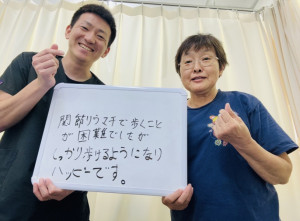 関節リウマチで歩くこと
が困難でしたが
しっかり歩けるようになり
ハッピーです。